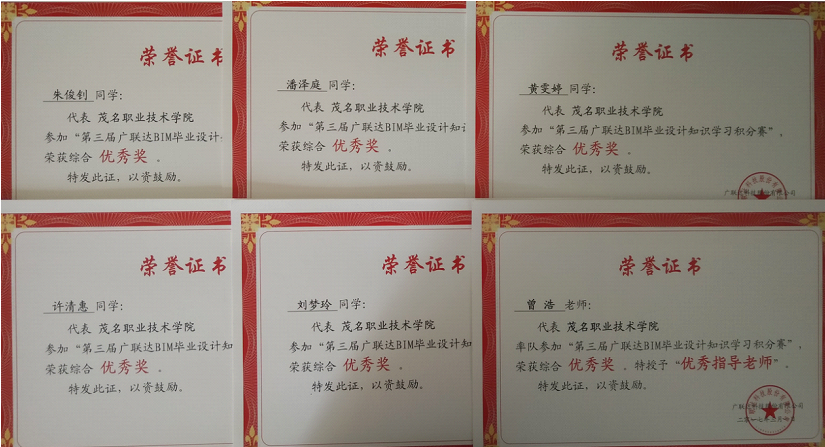 荣誉证书
朱俊钊 同学：
代表 茂名职业技术学院
参加“第三届广联达BIM毕业设计
荣获综合 优秀奖 。
特发此证，以资鼓励。
荣誉证书
潘泽庭 同学：
代表 茂名职业技术学院
参加“第三届广联达BIM毕业设计知
荣获综合 优秀奖 。
特发此证，以资鼓励。
荣誉证书
黄雯婷 同学：
代表 茂名职业技术学院
参加“第三届广联达BIM毕业设计知识学习积分赛”，
荣获综合 优秀奖 。
特发此证，以资鼓励。
荣誉证书
许清惠 同学：
代表 茂名职业技术学院
参加“第三届广联达BIM毕业设计知
荣获综合 优秀奖 。
特发此证，以资鼓励。
荣誉证书
刘梦玲 同学：
代表 茂名职业技术学院
参加“第三届广联达BIM毕业设计知
荣获综合 优秀奖 。
特发此证，以资鼓励。
荣誉证书
曾浩 老师：
代表 茂名职业技术学院
率队参加“第三届广联达BIM毕业设计知识学习积分赛”，
荣获综合 优秀奖 。特授予“优秀指导老师”。